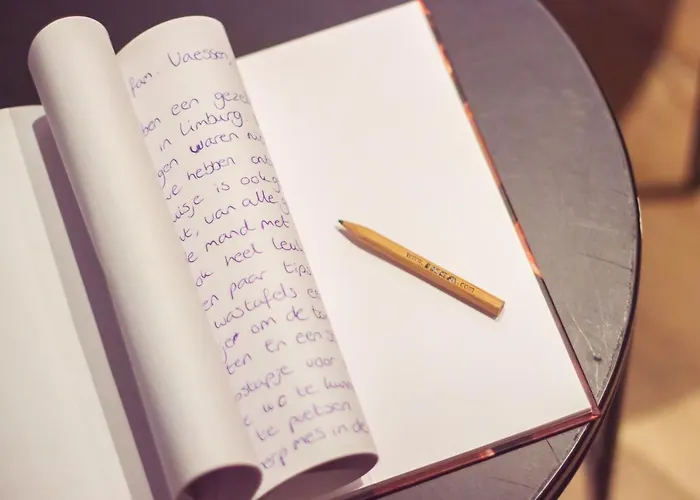 Fam. Vaessen,
ben een geze
in Limburg
gen waren
we hebben ont
uisje is ook g
van alle
e mand met
ook heel leu
en paar tips
wastafels e
om de
ten en een s
pstapje voor
te kun
te poetsen
erp mes in de
www. .com